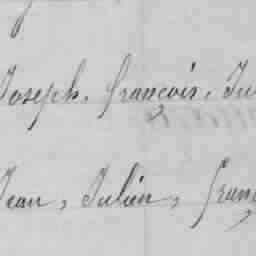 Joseph, françois, Ju
Jean, Julien, franç